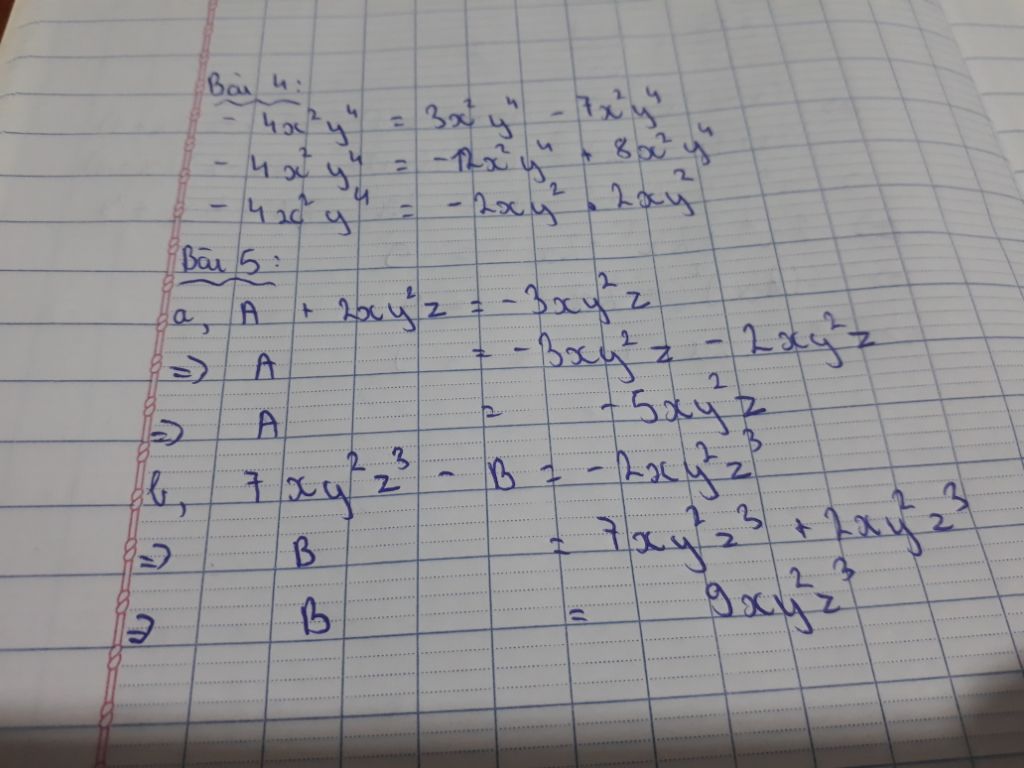 Bài 4:
- 4x²y⁴ = 3x²y⁴ - 7x²y⁴
- 4x²y⁴ = -12x²y⁴ + 8x²y⁴
- 4x²y⁴ = -2xy² . 2xy²
Bài 5:
a, A + 2xy²z = -3xy²z
=> A = -3xy²z - 2xy²z
=> A = -5xy²z
b, 7xy²z³ - B = -2xy²z³
=> B = 7xy²z³ + 2xy²z³
=> B = 9xy²z³